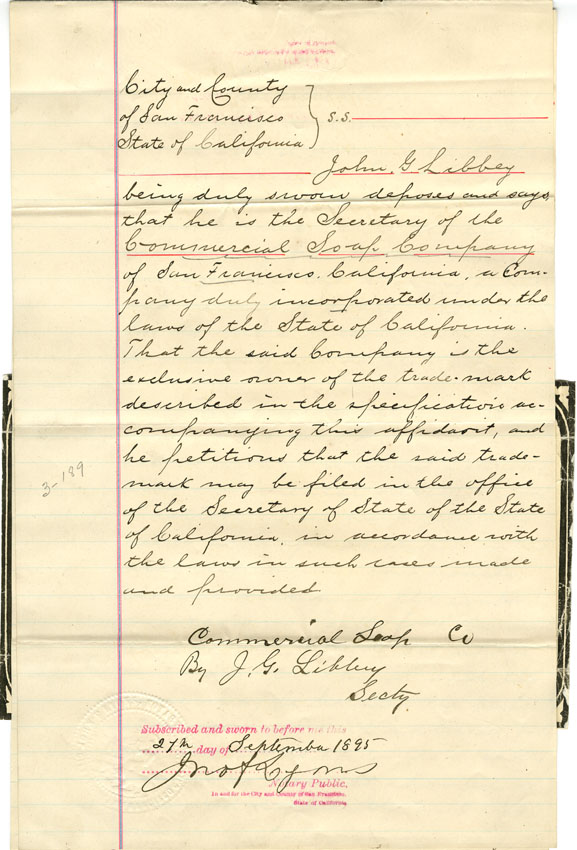 City and County
of San Francisco
State of California
} S.S.
John. G Libbey
being duly sworn deposes and says
that he is the Secretary of the
Commercial Soap Company
of San Francisco. California, a Com-
pany duly incorporated under the
laws of the State of California.
That the said Company is the
exclusive owner of the trade-mark
described in the specification ac-
companying this affidavit, and
he petitions that the said trade-
mark may be filed in the office
of the Secretary of State of the State
of California, in accordance with
the laws in such cases made
and provided
3-189
Commercial Soap Co
By J. G. Libbey
Secty.
Subscribed and sworn to before me this
27th day of September 1895
Notary Public,
In and for the City and County of San Francisco,
State of California.